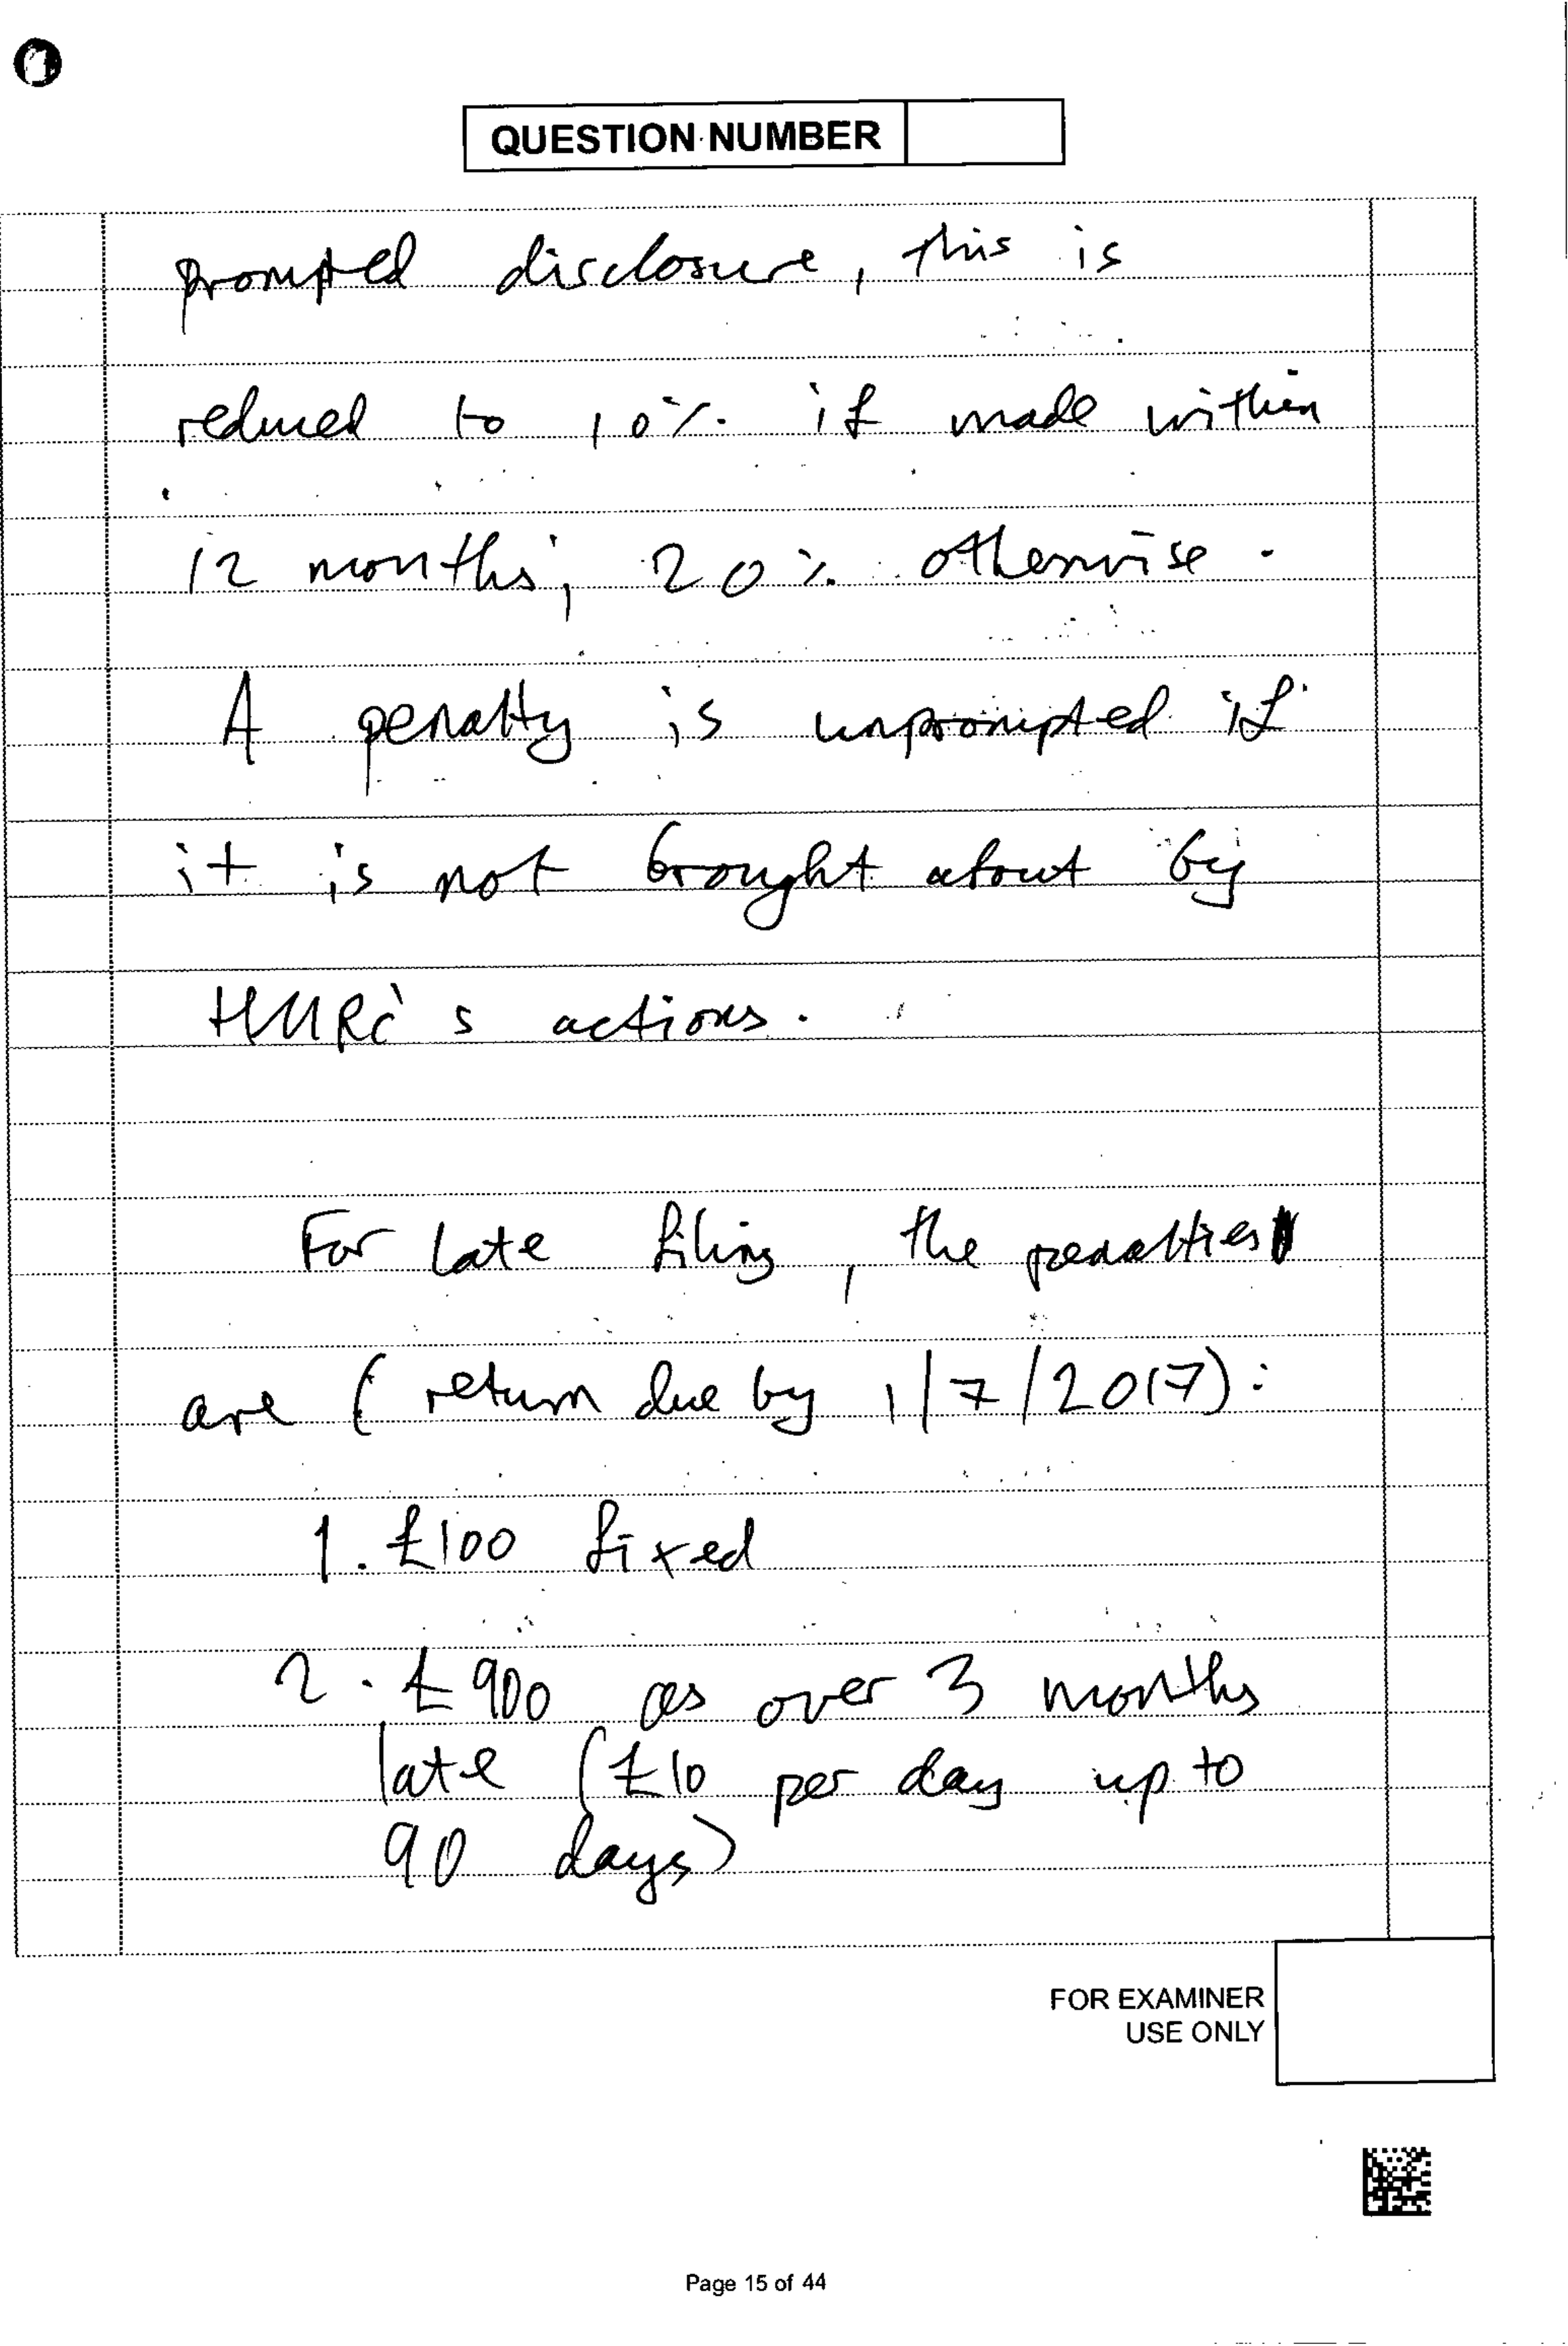 QUESTION NUMBER
prompted disclosure, this is
reduced to 10% if made within
12 months, 20% otherwise.
A penalty is unprompted if
it is not brought about by
HMRC's actions.
For late filing, the penalties
are (return due by 1/7/2017):
1. £100 fixed
2. £900 as over 3 months
late (£10 per day up to
90 days)
FOR EXAMINER
USE ONLY
Page 15 of 44